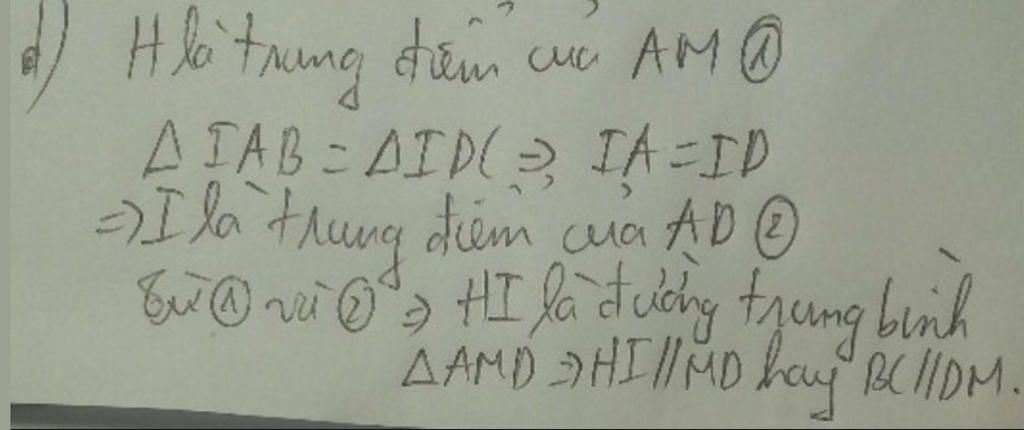 d) H là trung điểm của AM ①
Δ IAB = Δ IDC => IA = ID
=> I là trung điểm của AD ②
Từ ① và ② => HI là đường trung bình
Δ AMD => HI // MD hay BC // DM.